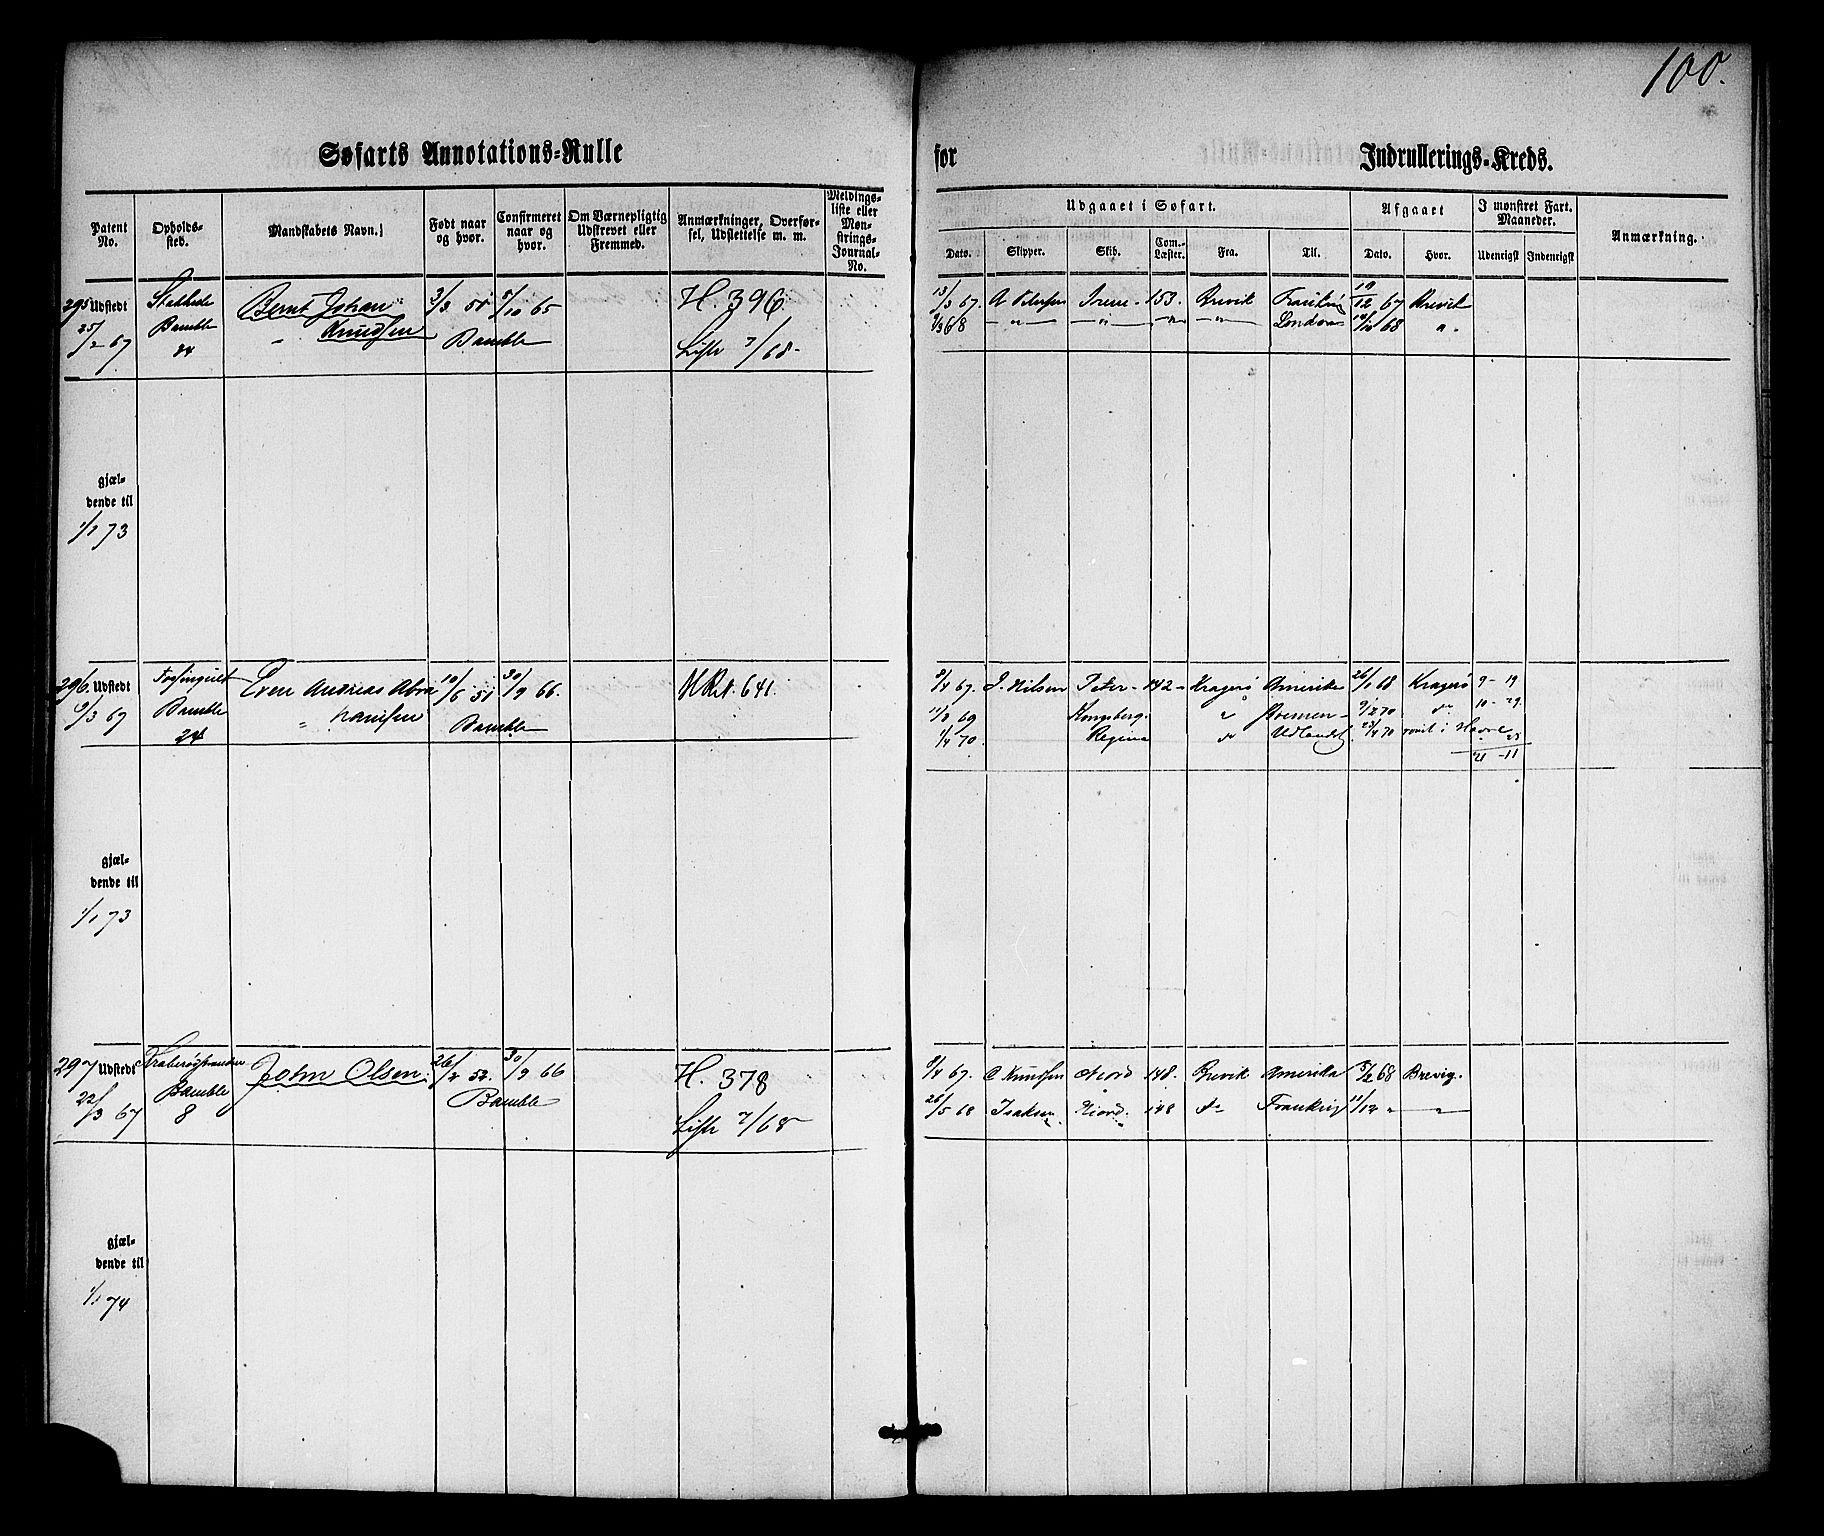 100.
Søfarts Annotations-Rulle
for Indrullerings-Kreds.
Patent No. Opholds-sted. Mandskabets Navn. Født naar og hvor. Confirmeret naar og hvor. Om Værnepligtig Udskrevet eller Fremmed. Anmærkninger, Overførsel, Udslettelse m. m. Meldings-liste eller Mønstrings-Journal-No.
Udgaaet i Søfart. Afgaaet I mønstret Fart. Maaneder. Anmærkning.
Dato. Skipper. Skib. Com.-Læster. Fra. Til. Dato. Hvor. Udenrigst Indenrigst
295 Udstedt Bernt Johan 3/3 51 7/10 65 H. 396
25/2 67 Bamble Knudsen Bamble Liste 7/68
24
13/3 67. A Petersen Irene 153. Brevik 19/12 67 Brevik
9/3 68 London 68 "
gjæl-
dende til
1/1 73
296 Udstedt Even Andreas Abra 10/6 51 30/9 66. 641.
9/3 67 Bamble " hamsen Bamble
24
9/4 67. J. Nilsen Peter 142 Kragerø Amerika 26/1 68 Kragerø 9 - 19
11/8 69 Kongsberg. " Bremen 9/2 70 do 10 - 29
1/4 70 Regina do Udlandet 23/4 70 i Havre
21 - 11
gjæl-
dende til
1/1 73
297 Udstedt John Olsen. 26/2 52 30/9 66 H. 378
22/3 67 Bamble Bamble Liste 7/68
8
8/4 67. C Knudsen Niord 148. Brevik Amerika 5/2 68 Brevig.
26/5 68 Isaksen Niord. 148 do Frankrig 11/12 " "
gjæl-
dende til
1/1 74